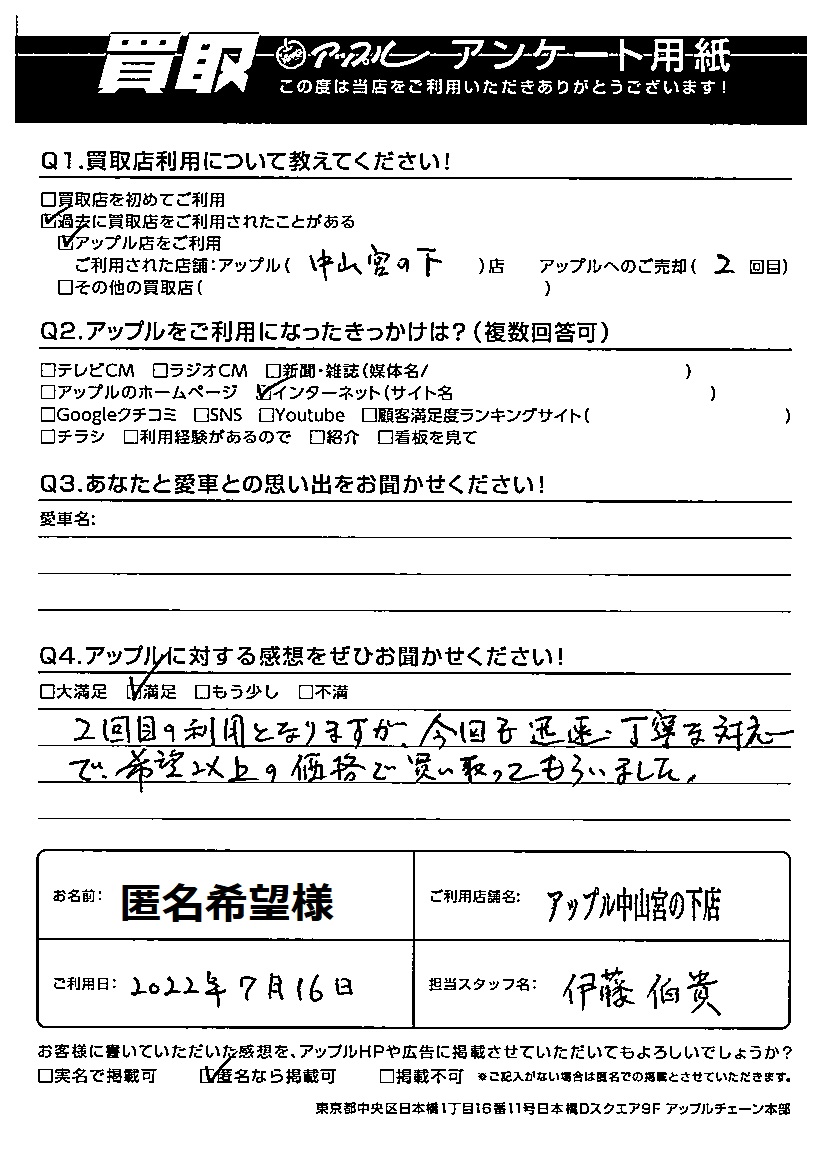 買取 アップル アンケート用紙
この度は当店をご利用いただきありがとうございます!
Q1.買取店利用について教えてください!
□買取店を初めてご利用
☑過去に買取店をご利用されたことがある
☑アップル店をご利用
ご利用された店舗:アップル( 中山宮の下 )店 アップルへのご売却( 2 回目)
□その他の買取店( )
Q2.アップルをご利用になったきっかけは?(複数回答可)
□テレビCM □ラジオCM □新聞・雑誌(媒体名/ )
□アップルのホームページ ☑インターネット(サイト名 )
□Googleクチコミ □SNS □Youtube □顧客満足度ランキングサイト( )
□チラシ □利用経験があるので □紹介 □看板を見て
Q3.あなたと愛車との思い出をお聞かせください!
愛車名:
Q4.アップルに対する感想をぜひお聞かせください!
□大満足 ☑満足 □もう少し □不満
2回目の利用となりますが、今回も迅速・丁寧な対応
で、希望以上の価格で買い取ってもらいました。
お名前: 匿名希望様 ご利用店舗名: アップル中山宮の下店
ご利用日: 2022年7月16日 担当スタッフ名: 伊藤 伯貴
お客様に書いていただいた感想を、アップルHPや広告に掲載させていただいてもよろしいでしょうか?
□実名で掲載可 ☑匿名なら掲載可 □掲載不可 ※ご記入がない場合は匿名での掲載とさせていただきます。
東京都中央区日本橋1丁目16番11号日本橋Dスクエア9F アップルチェーン本部